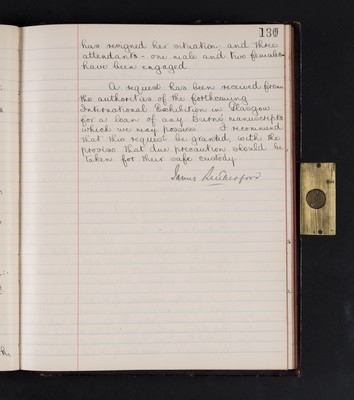 130
has resigned her situation, and three
attendants - one male and two females
have been engaged.
A request has been received from
the authorities of the forthcoming
International Exhibition in Glasgow
for a loan of any Burns manuscripts
which we may possess. I recommend
that this request be granted, with the
proviso that due precaution should be
taken for their safe custody.
James Rutherford